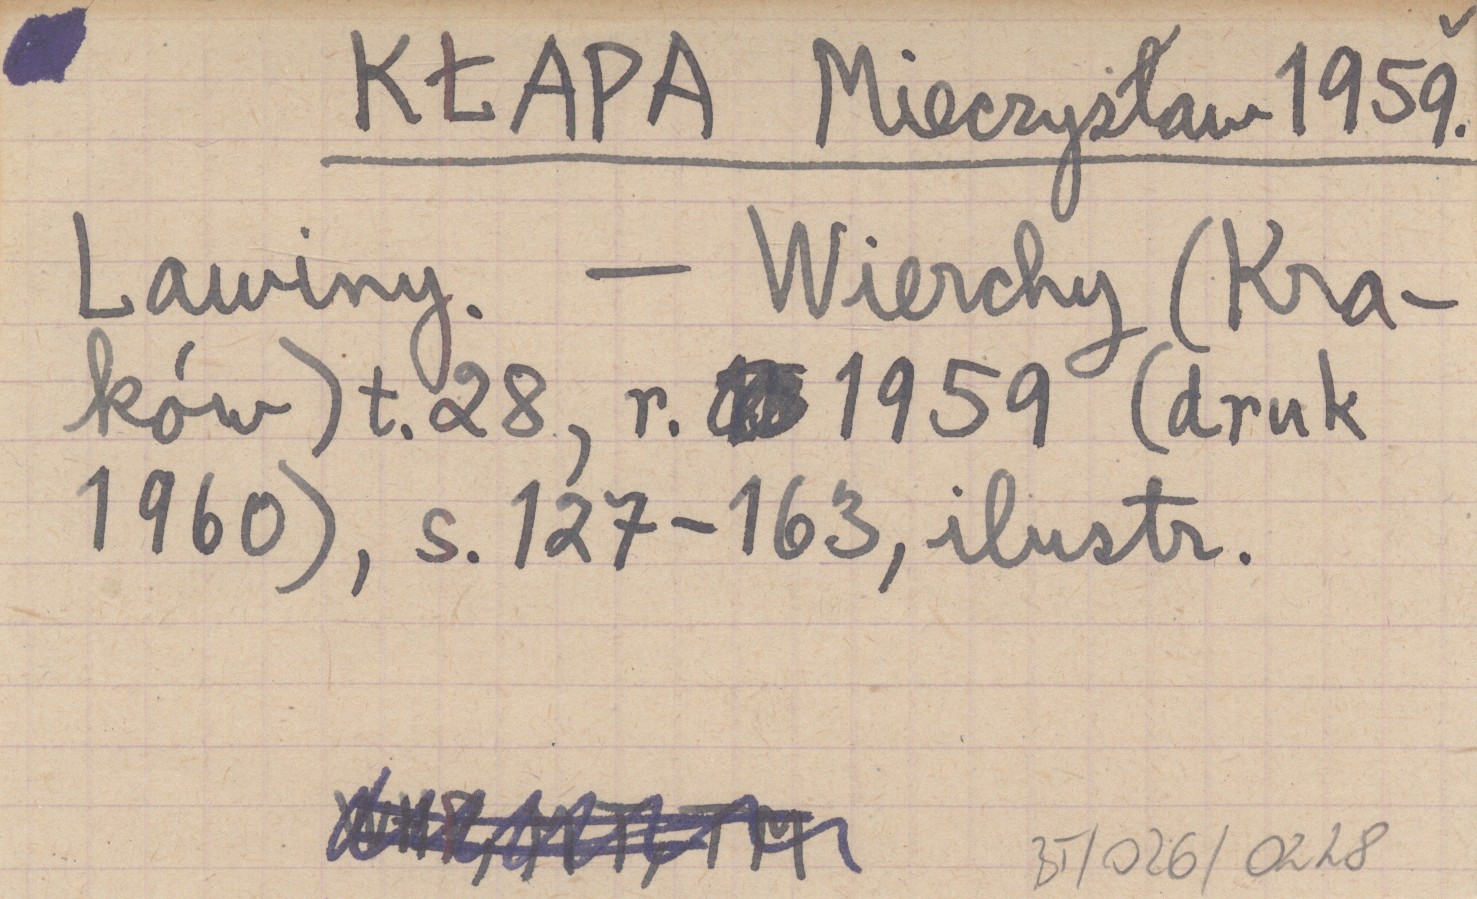 KŁAPA Mieczysław 1959.
Lawiny. — Wierchy (Kra-
ków) t. 28, r. 1959 (druk
1960), s. 127-163, ilustr.
BT/026/0228